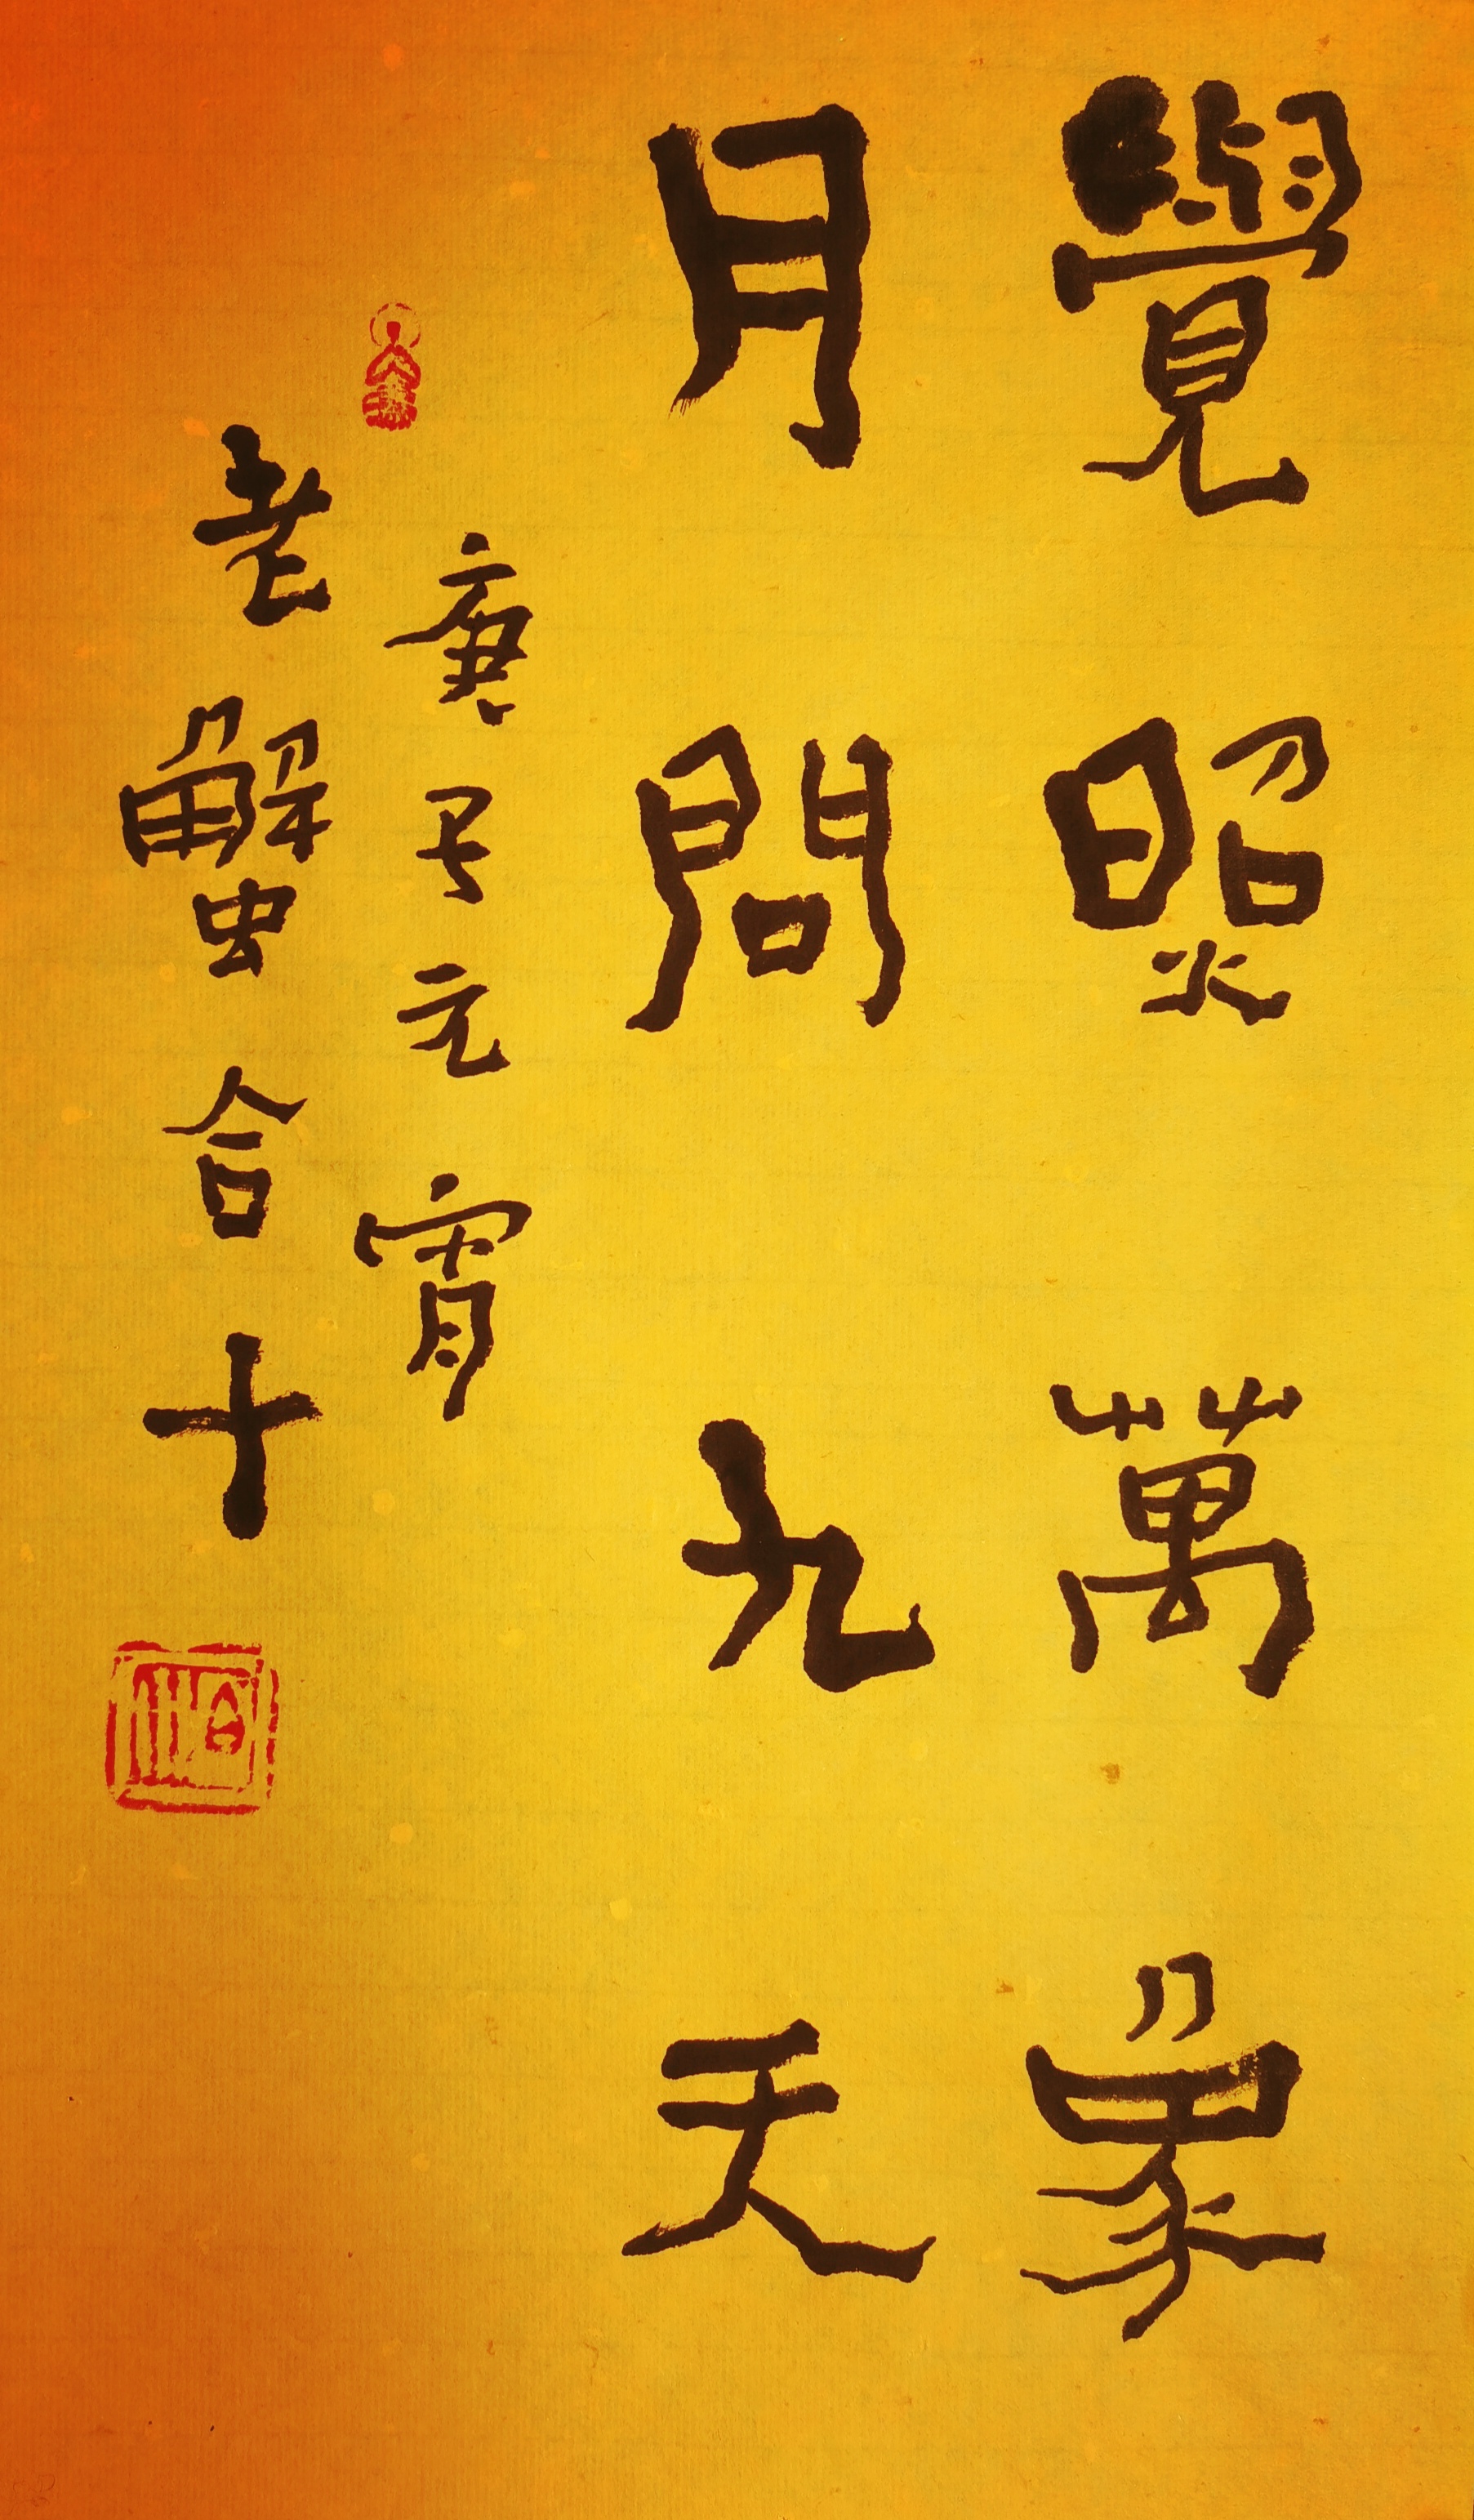 覺照萬象
月問九天
庚子元宵
老蟹合十